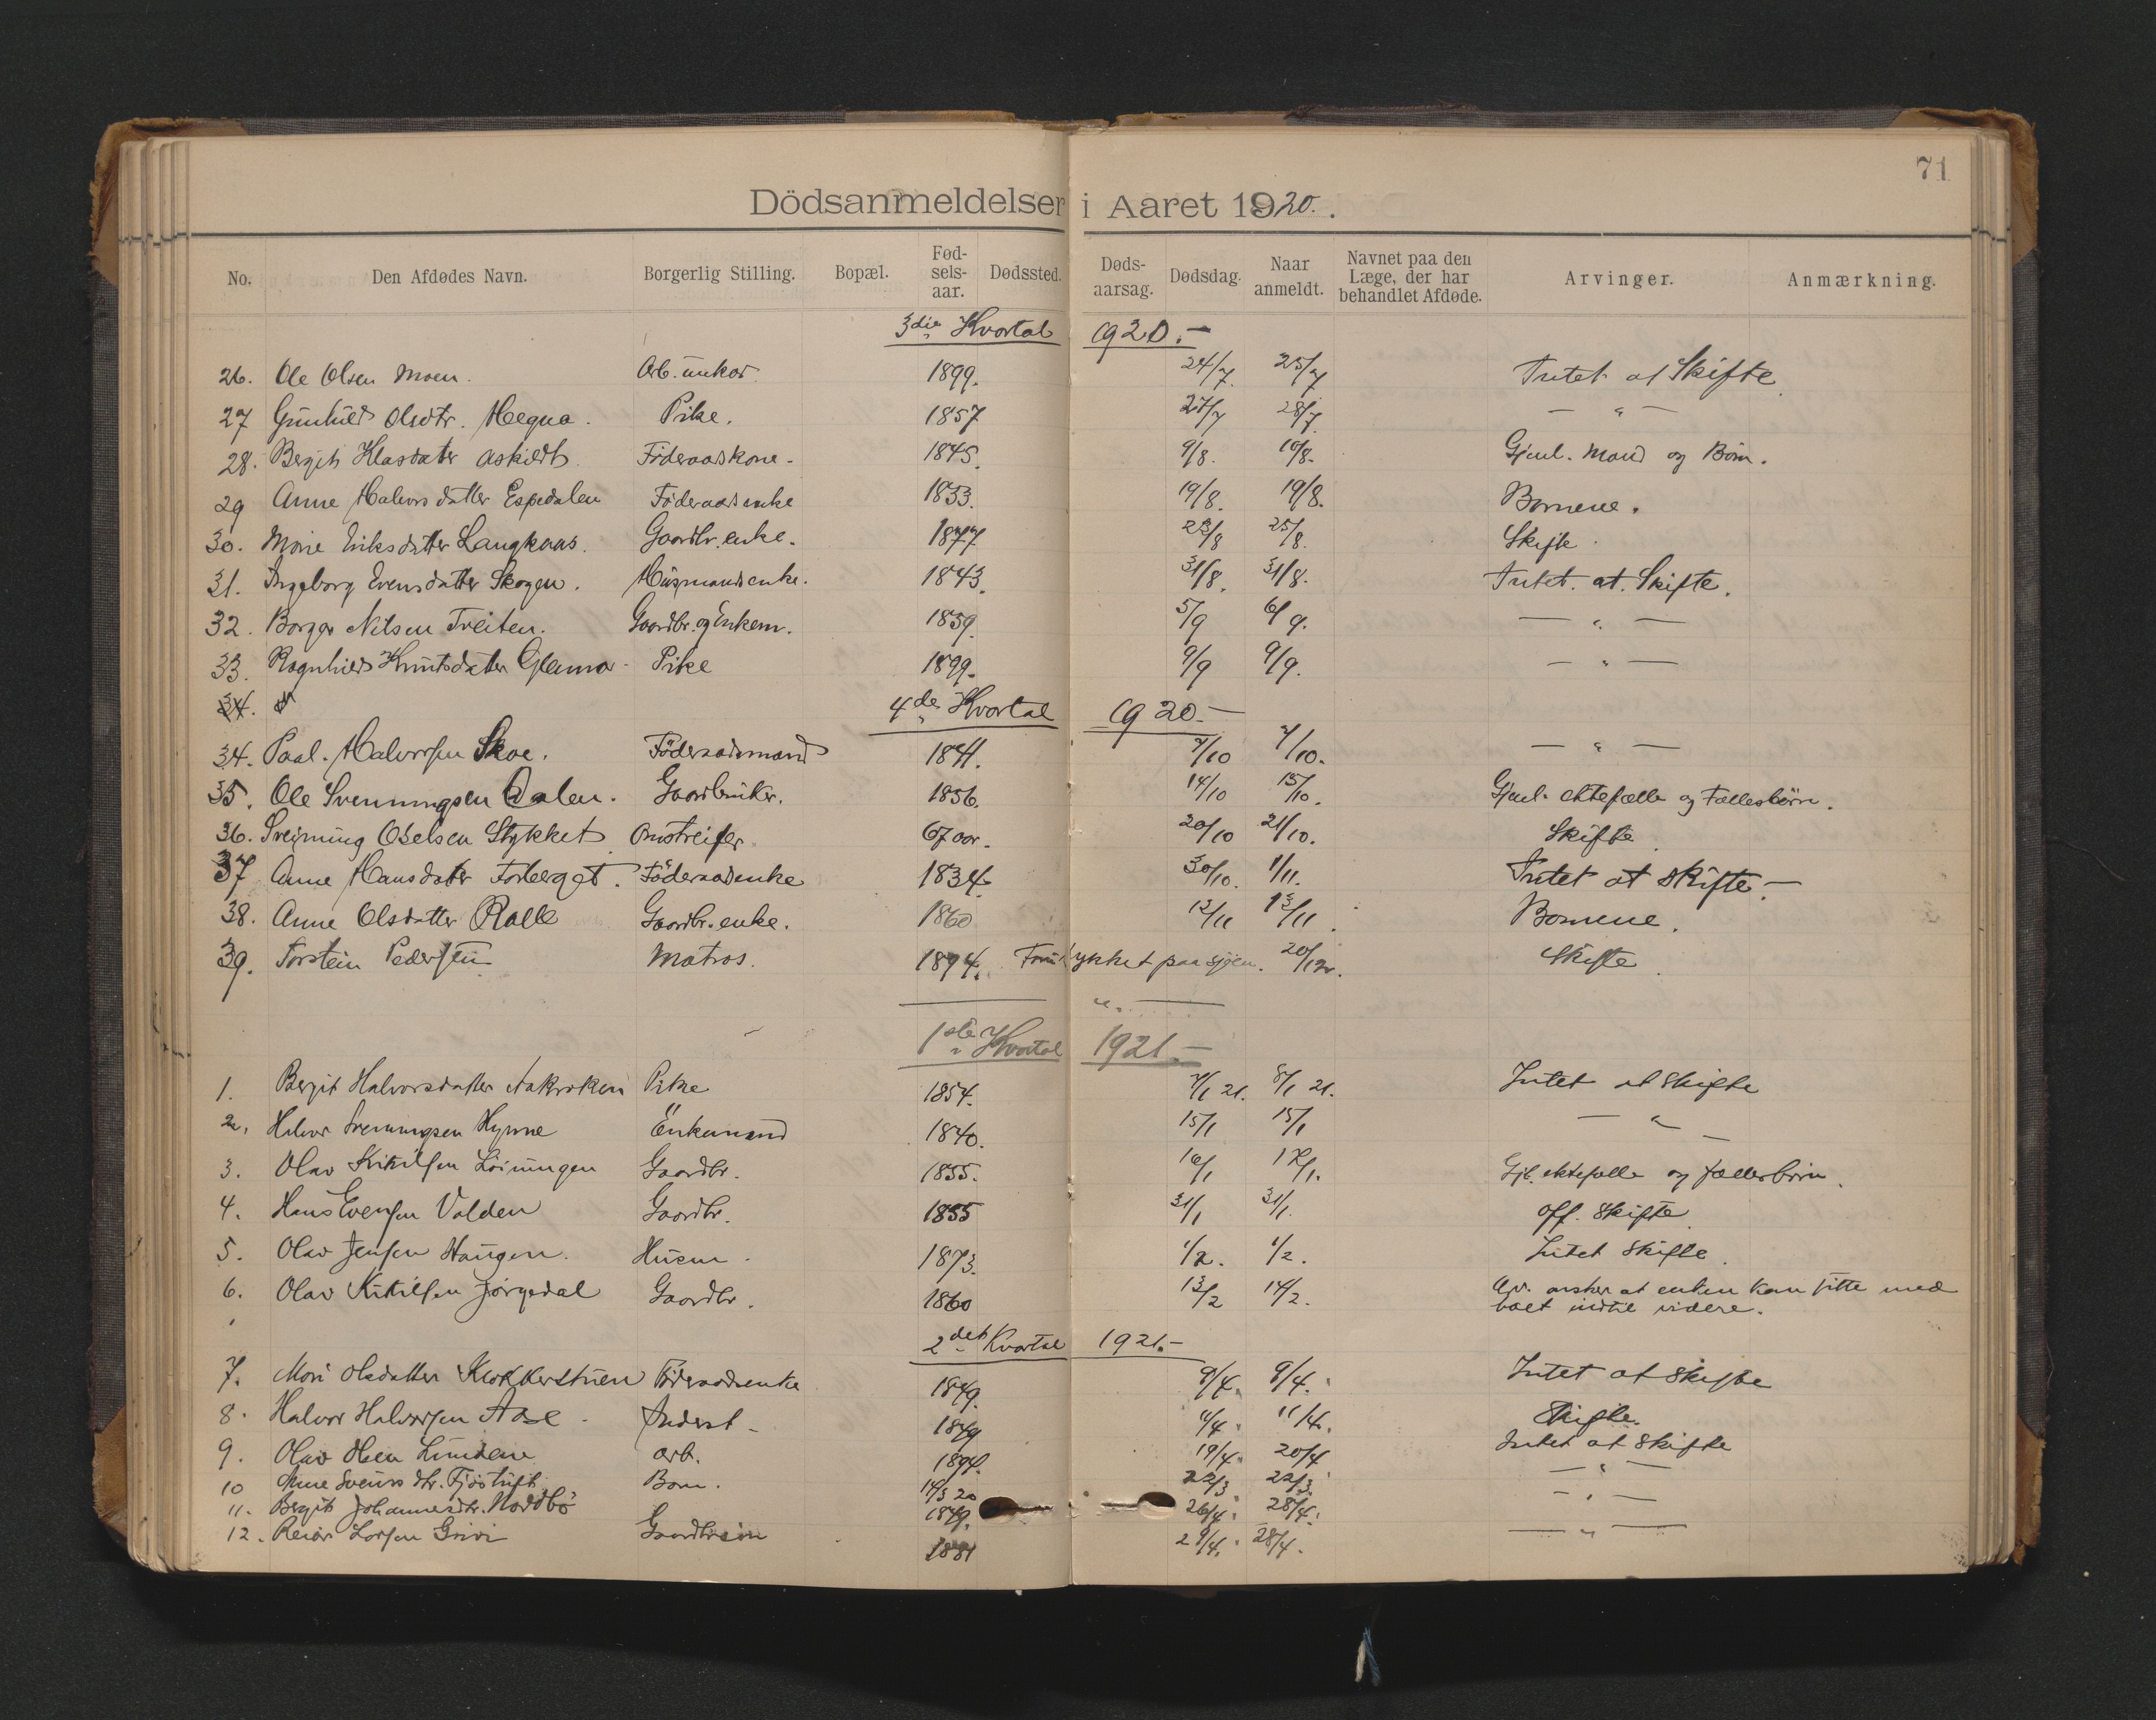 71
Dödsanmeldelser i Aaret 1920.
No. Den Afdødes Navn. Borgerlig Stilling. Bopæl. Fød-sels-aar. Dødssted. Døds-aarsag. Dødsdag. Naar anmeldt. Navnet paa den Læge, der har behandlet Afdøde. Arvinger. Anmærkning.
3die Kvartal 1920.—
26. Ole Olsen Moen. Arb. unkar. 1899. 24/7. 25/7 Intet at Skifte
27 Gunhild Olsdtr. Hegna. Pike. 1857 27/7 28/7. — " —
28. Bergit Klasdater Askildt. Föderaadskone. 1845. 9/8. 10/8. Gjenl. Mand og Börn.
29 Anne Halvorsdatter Espedalen Föderaadsenke 1833. 19/8. 19/8. Bornene.
30. Marie Eriksdatter Langkaas. Gaardbr. enke. 1877 23/8 25/8. Skifte.
31. Ingeborg Evensdatter Skogen. Husmandsenke. 1843. 31/8. 31/8. Intet. at. Skifte.
32. Borger Nilsen Treiten. Gaardbr. og Enkem. 1859. 5/9 6/9. — " —
33. Ragnhild Knutsdater Glama Pike 1899. 9/9 9/9. — " —
34.
4de Kvartal 1920.—
34. Paal. Halvorsen Skoe. Föderaadsmand 1841. 7/10 7/10. — " —
35. Ole Svenningsen Dalen. Gaardbruker. 1856. 14/10 15/10. Gjenl. ektefælle og Fællesbörn.
36. Sveinung Olselsen Stykket Omstreifer 67 aar. 20/10 21/10. Skifte.
37 Anne Hansdater Forberget. Föderaadenke 1834. 30/10. 1/11. Intet at skifte.—
38. Anne Olsdatter Rolle Gaardbr. enke. 1860 12/11 13/11. Bornene.
39. Torstein Pedersen Matros. 1894. Forulykket paa sjöen. 20/12. Skifte.
— " —
1ste Kvartal 1921.—
1. Bergit Halvorsdatter Aakroken Pike 1854. 7/1 21. 8/1 21. Intet at skifte
2. Halvor Svenningsen Hynne Enkemand 1840. 15/1 15/1 — " —
3. Olav Kitilsen Löiningen Gaardbr. 1855. 16/1 18/1. Gjl. ektefælle og fællesbörn.
4. Hans Evensen Valden Gaardbr. 1855 31/1 31/1. off. skifte.
5. Olav Jensen Haugen. Husm. 1873. 1/2. 1/2. Intet skifte.
6. Olav Kitilsen Jörgedal Gaardbr. 1860 13/2 14/2. Arv. önsker at enken kan sitte med
boet indtil videre.
2det Kvartal 1921.—
7. Mari Olsdatter Klokkerstuen Föderaadsenke 1849. 8/4. 8/4. Intet at skifte
8. Halvor Halvorsen Aase. Inderst 1849 4/4. 11/4. Skifte.
9. Olav Olsen Lindem arb. 1894. 19/4. 20/4 Intet at skifte
10 Anne Sveins dtr. Fjöstuft. Barn. 14/3 20 22/3 22/3. — " —
11. Bergit Johannesdtr. Nordbö 1849. 26/4. 28/4. — " —
12. Reiar Larsen Grivi Gaardbrsön 1881 29/4. 28/4. — " —